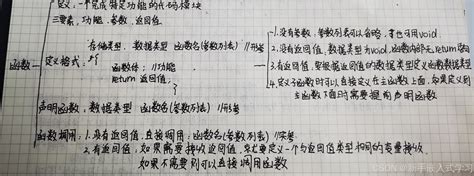 定义: 一个完成特定功能的代码模块
三要素: 功能、参数、返回值
函数
定义格式:
存储类型 数据类型 函数名(参数列表) //形参
{
函数体; //功能
return 返回值;
}
1.没有参数,参数列表可以省略,拿也可用void
2.没有返回值,数据类型为void,函数内部无return语句
3.有返回值,要根据返回值的数据类型定义函数数据类型
4.定义函数时可以直接定义在主函数上面,如果定义到
主函数下面时需要提前声明函数
声明函数: 数据类型 函数名(参数列表) //形参
函数调用: 1.没有返回值,直接调用: 函数名(参数列表) //实参
2.有返回值: 如果需要接收返回值,就要定义一个与返回值类型相同的变量接收
如果不需要则可以直接调用函数